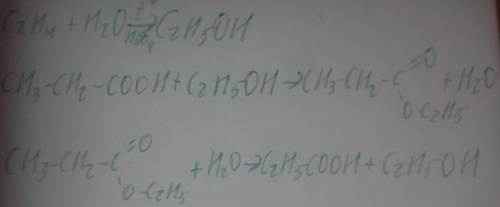 C2H4 + H2O →t H2SO4 C2H5OH
CH3-CH2-COOH + C2H5OH → CH3-CH2-C=O O-C2H5 + H2O
CH3-CH2-C=O O-C2H5 + H2O → C2H5COOH + C2H5OH